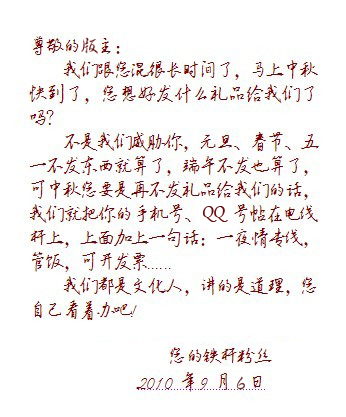 尊敬的版主：
我们跟您混很长时间了，马上中秋
快到了，您想好发什么礼品给我们了
吗?
不是我们威胁你，元旦、春节、五
一不发东西就算了，端午不发也算了，
可中秋您要是再不发礼品给我们的话，
我们就把你的手机号、QQ 号帖在电线
杆上，上面加上一句话：一夜情专线，
管饭，可开发票……
我们都是文化人，讲的是道理，您
自己看着办吧!
您的铁杆粉丝
2010 年 9 月 6 日